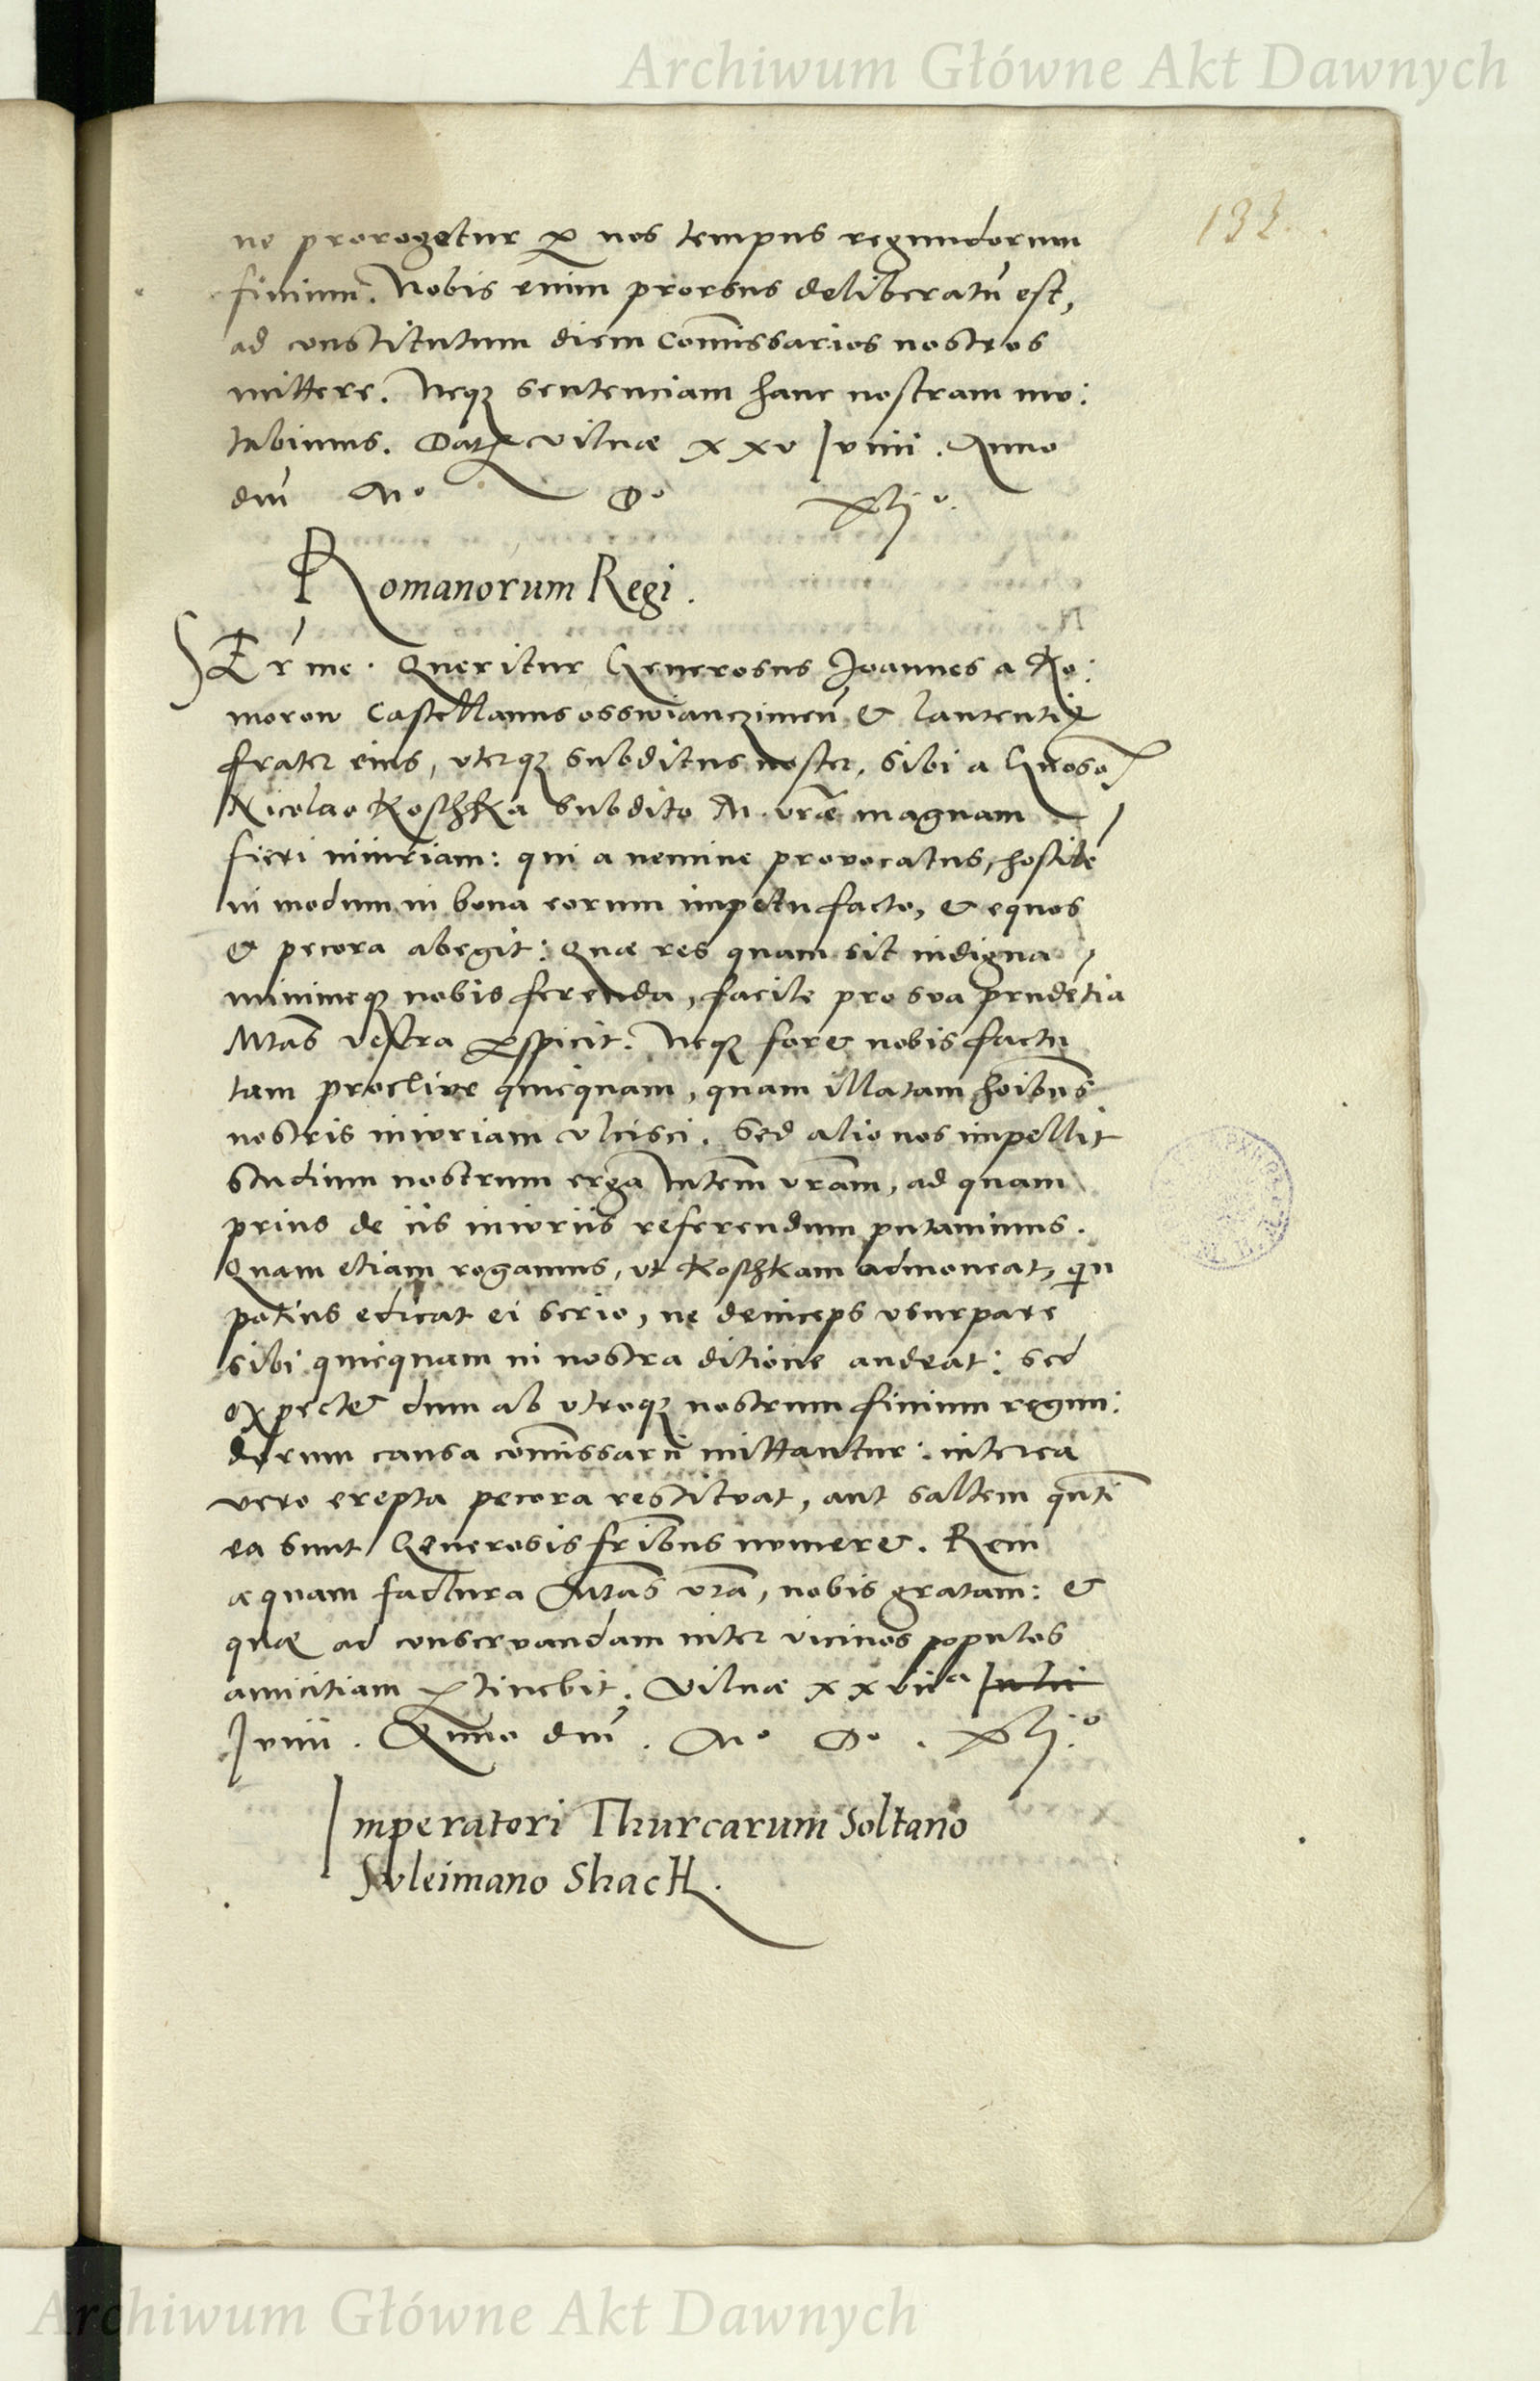 Archiwum Główne Akt Dawnych
132.
ne prorogetur ꝑ nos tempus regundorum
finium. Nobis enim prorsus deliberatū est,
ad constitutum diem Com̄issarios nostros
mittere. Neqꝫ sentenciam hanc nostram mu:
tabimus. Dat Vilnae xxv Junii. Anno
dnī Mº Dº xlijº.
Romanorum Regi.
SEr͞me. Queritur Generosus Joannes a Ko:
morow Castellanus osswianczimeñ & laurentiꝰ
frater eius, uterqꝫ subditus noster, sibi a Gnoso
Nicolao Koschka subdito M. vrae magnam
fieri iniuriam: qui a nemine provocatus, hostilē
in modum in bona eorum impetu facto, & equos
& pecora abegit: Quae res quam sit indigna
minimeqꝫ nobis ferenda, facile pro sua prudētia
Mtas vestra ꝑspicit. Neqꝫ fore nobis factu
tam proclive quicquam, quam illatam hoībus
nostris iniuriam ulcisci. Sed alio nos impellit
studium nostrum erga Mtem vram, ad quam
prius de iis iniuriis referendum putavimus.
Quam etiam rogamus, ut Koschkam admoneat, quin
potius edicat ei serio, ne deinceps usurpare
sibi quicquam in nostra ditione audeat: sed
expectet dum ab utroqꝫ nostrum finium regun:
dorum causa com̄issarii mittantur: interea
vero erepta pecora restituat, aut saltem quāti
ea sunt Generosis fribus numeret. Rem
aequam factura Mtas vra, nobis gratam: &
quae ad conservandam inter vicinos populos
amicitiam ꝑtinebit. Vilnae xxviiª Julii
Junii. Anno dnī. Mº Dº. xlijº
Imperatori Thurcarum Soltano
Suleimano Shach.
Archiwum Główne Akt Dawnych